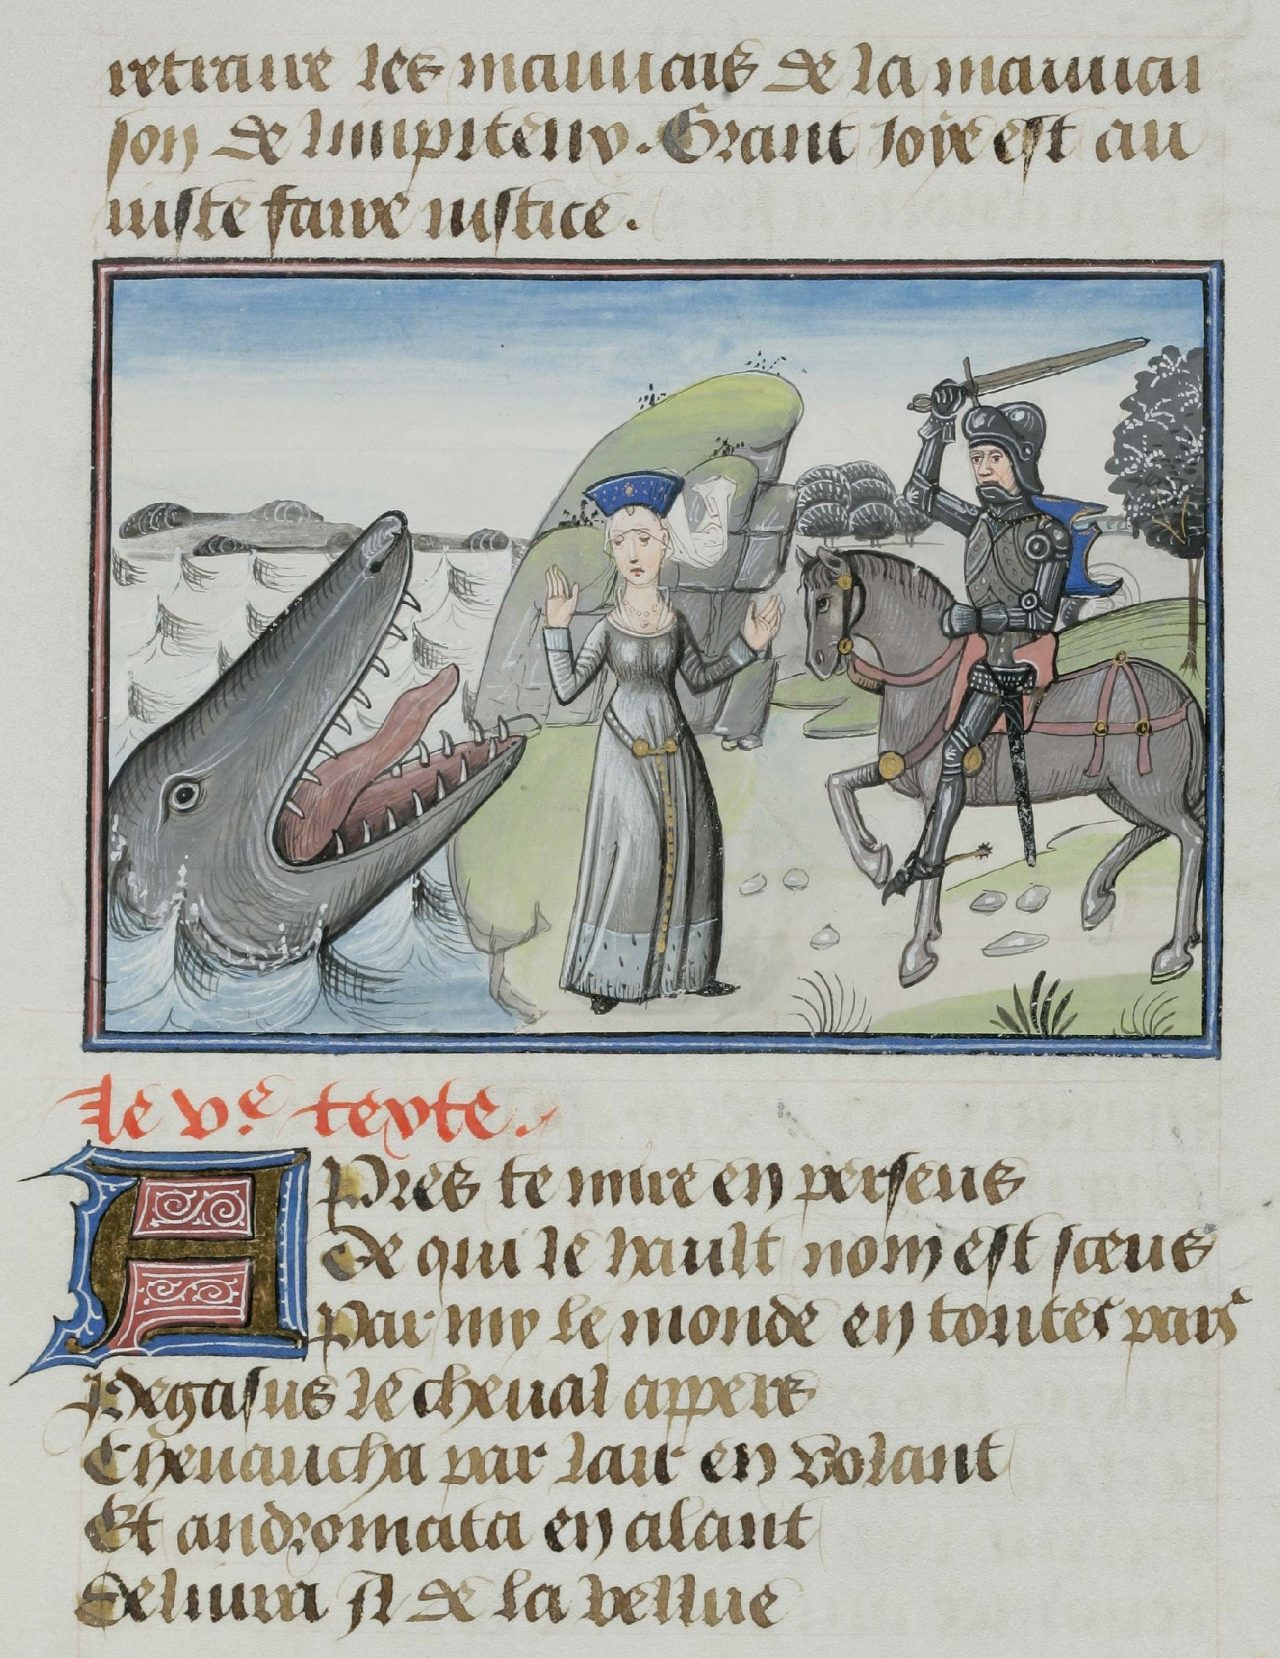 retraire les mauuais de la mauuai
son de limpiteux. Grant Joye est au
iuste faire iustice.
Le ve texte.
Apres te mire en perseus
De qui le hault nom est sceus
Par my le monde en toutes pars
Pegasus le cheual appers
Cheuaucha par lair en volant
Et andromata en alant
Deliura Il de la bellue